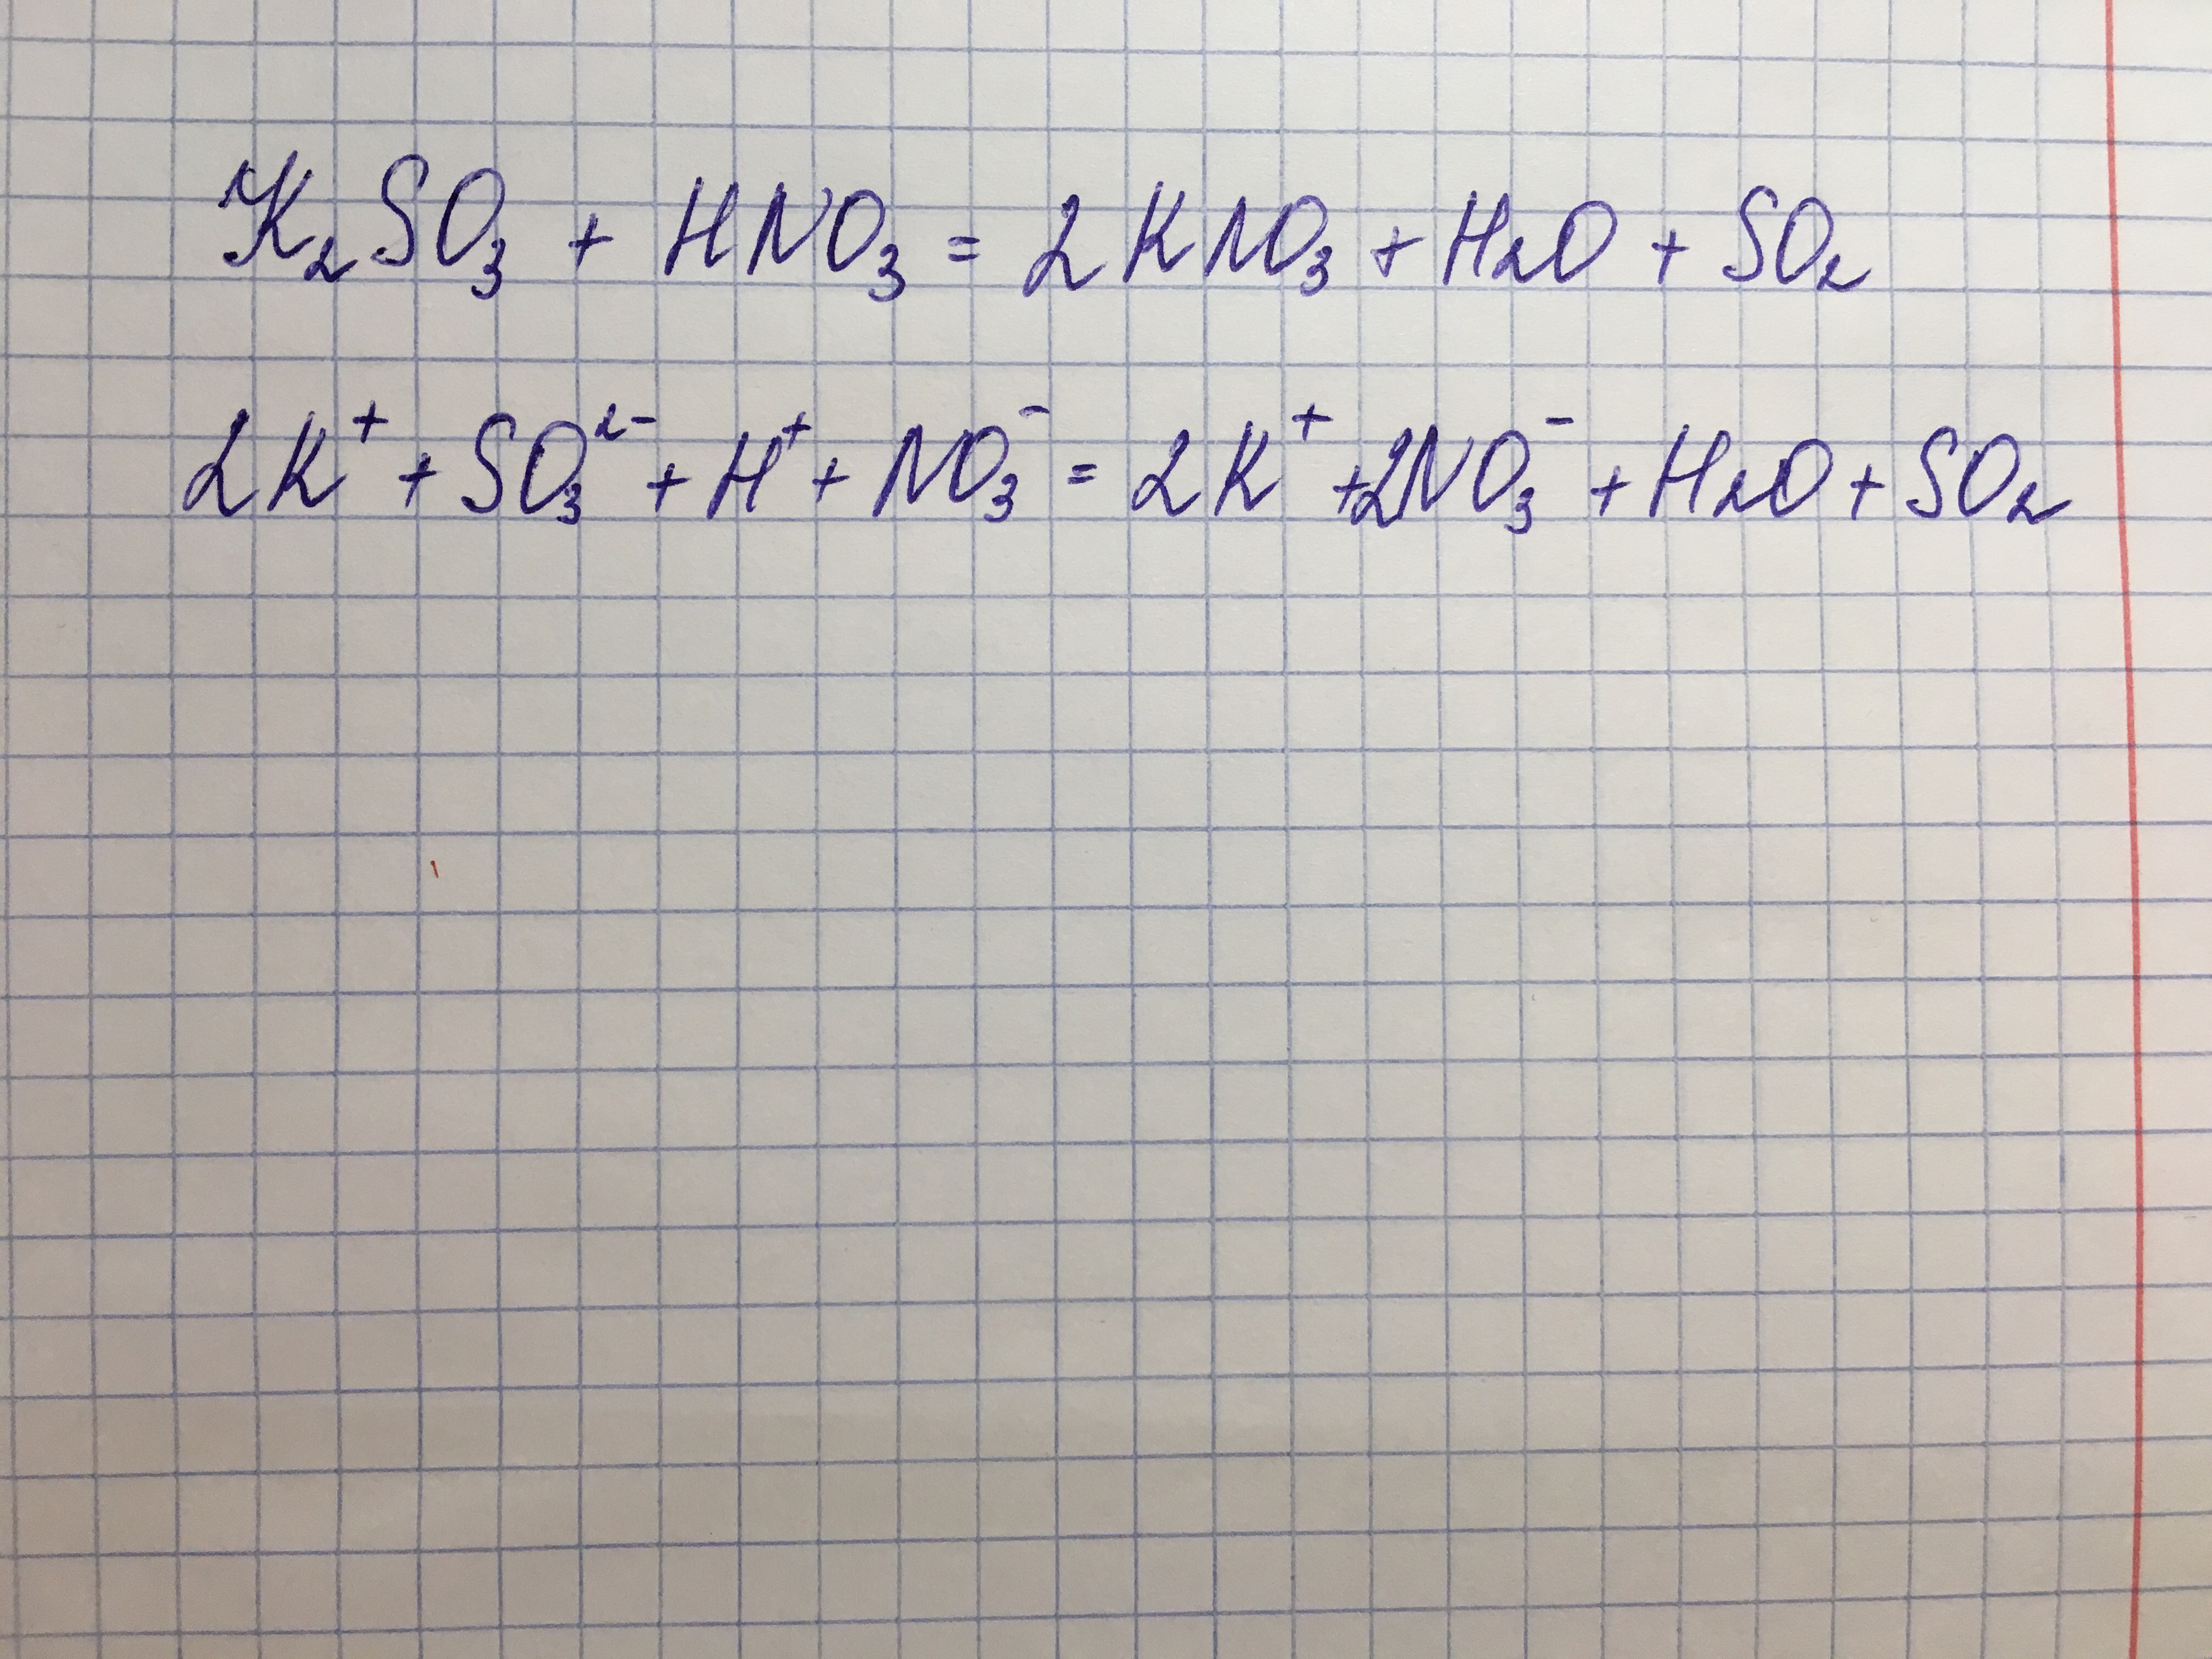 K₂SO₃ + HNO₃ = 2KNO₃ + H₂O + SO₂
2K⁺ + SO₃²⁻ + H⁺ + NO₃⁻ = 2K⁺ + 2NO₃⁻ + H₂O + SO₂